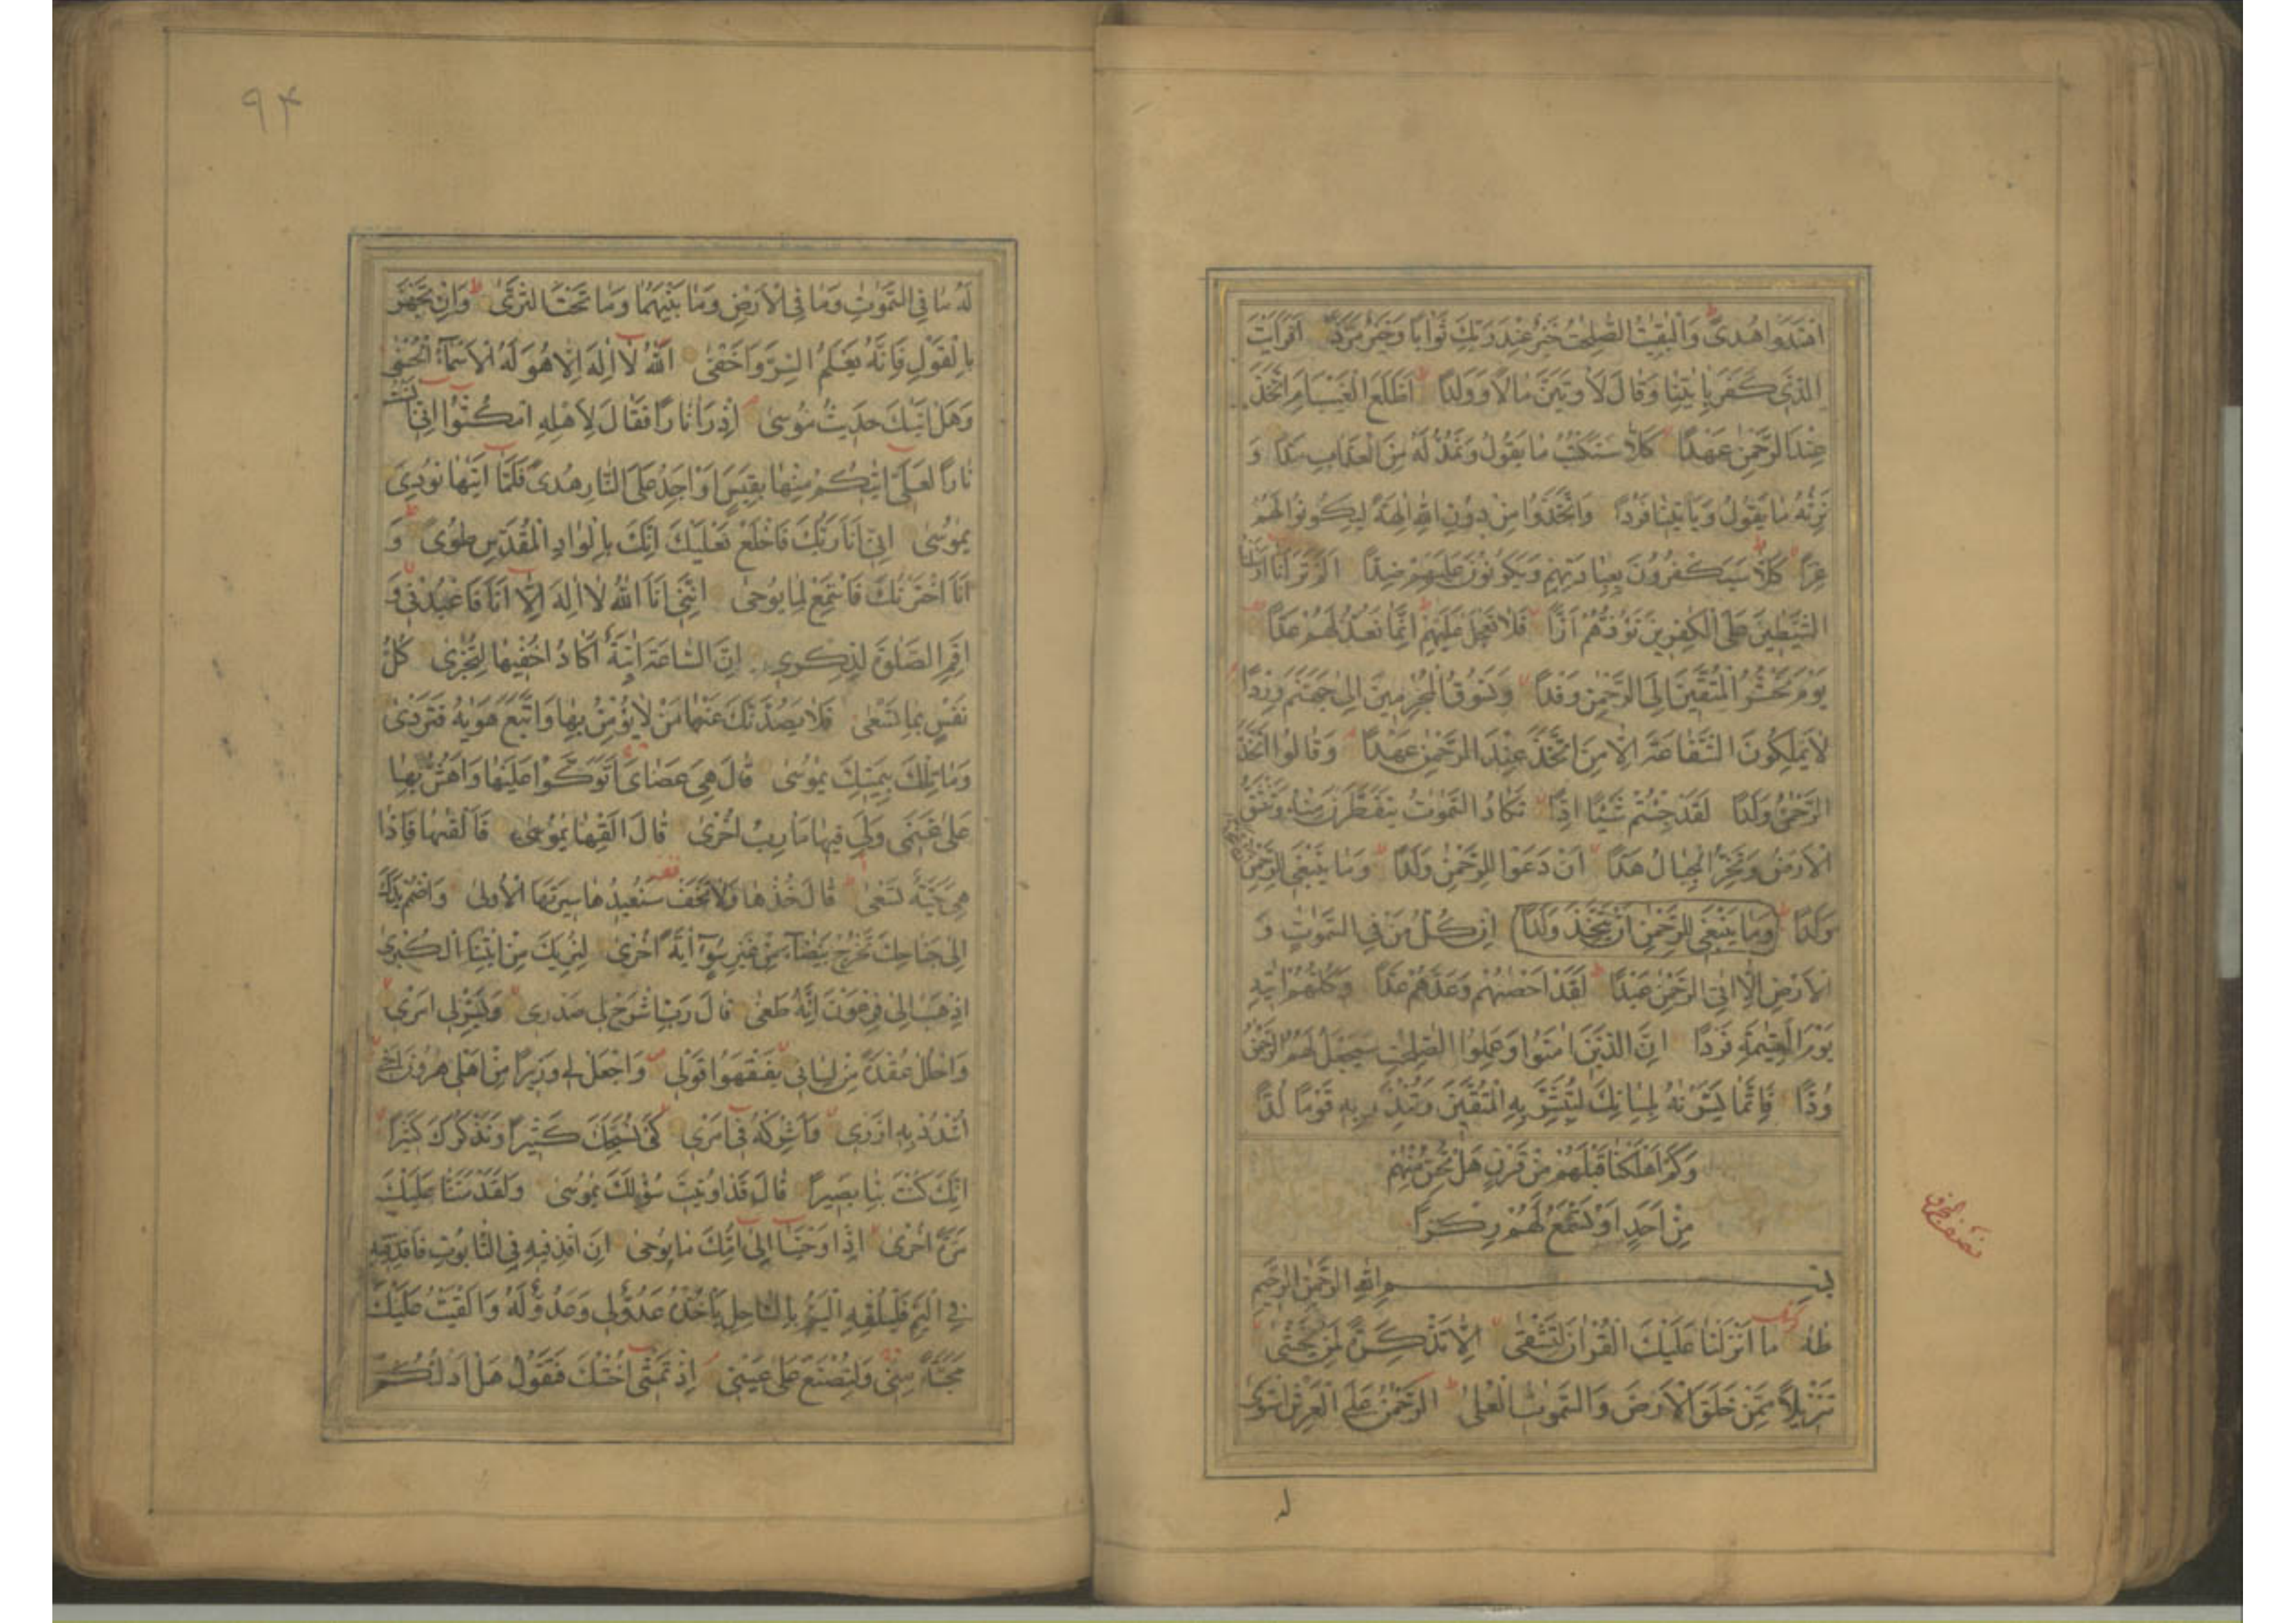 اهتدوا هدى والبقيت الصلحت خير عند ربك ثوابا وخير مردا افرايت
الذى كفر بايتنا وقال لاوتين مالا وولدا اطلع الغيب ام اتخذ
عند الرحمن عهدا كلا سنكتب ما يقول ونمد له من العذاب مدا و
نرثه ما يقول وياتينا فردا واتخذوا من دون الله الهة ليكونوا لهم
عزا كلا سيكفرون بعبادتهم ويكونون عليهم ضدا الم تر انا ارسلنا
الشيطين على الكفرين تؤزهم ازا فلا تعجل عليهم انما نعد لهم عدا
يوم نحشر المتقين الى الرحمن وفدا ونسوق المجرمين الى جهنم وردا
لا يملكون الشفاعة الا من اتخذ عند الرحمن عهدا وقالوا اتخذ
الرحمن ولدا لقد جئتم شيئا ادا تكاد السموت يتفطرن منه وتنشق
الارض وتخر الجبال هدا ان دعوا للرحمن ولدا وما ينبغى للرحمن
ولدا وما ينبغى للرحمن ان يتخذ ولدا ان كل من فى السموت و
الارض الا اتى الرحمن عبدا لقد احصهم وعدهم عدا وكلهم اتيه
يوم القيمة فردا ان الذين امنوا وعملوا الصلحت سيجعل لهم الرحمن
ودا فانما يسرنه بلسانك لتبشر به المتقين وتنذر به قوما لدا
وكم اهلكنا قبلهم من قرن هل تحس منهم
من احد او تسمع لهم ركزا
بسم الله الرحمن الرحيم
طه ما انزلنا عليك القران لتشقى الا تذكرة لمن يخشى
تنزيلا ممن خلق الارض والسموت العلى الرحمن على العرش استوى
له
۹۴
له ما فى السموت وما فى الارض وما بينهما وما تحت الثرى وان تجهر
بالقول فانه يعلم السر واخفى الله لا اله الا هو له الاسماء الحسنى
وهل اتيك حديث موسى اذ را نارا فقال لاهله امكثوا انى انست
نارا لعلى اتيكم منها بقبس او اجد على النار هدى فلما اتيها نودى
يموسى انى انا ربك فاخلع نعليك انك بالواد المقدس طوى و
انا اخترتك فاستمع لما يوحى اننى انا الله لا اله الا انا فاعبدنى و
اقم الصلوة لذكرى ان الساعة اتية اكاد اخفيها لتجزى كل
نفس بما تسعى فلا يصدنك عنها من لا يؤمن بها واتبع هويه فتردى
وما تلك بيمينك يموسى قال هى عصاى اتوكوا عليها واهش بها
على غنمى ولى فيها مارب اخرى قال القها يموسى فالقها فاذا
هى حية تسعى قال خذها ولا تخف سنعيدها سيرتها الاولى واضمم يدك
الى جناحك تخرج بيضاء من غير سوء اية اخرى لنريك من ايتنا الكبرى
اذهب الى فرعون انه طغى قال رب اشرح لى صدرى ويسر لى امرى
واحلل عقدة من لسانى يفقهوا قولى واجعل لى وزيرا من اهلى هرون اخى
اشدد به ازرى واشركه فى امرى كى نسبحك كثيرا ونذكرك كثيرا
انك كنت بنا بصيرا قال قد اوتيت سؤلك يموسى ولقد مننا عليك
مرة اخرى اذ اوحينا الى امك ما يوحى ان اقذفيه فى التابوت فاقذفيه
فى اليم فليلقه اليم بالساحل ياخذه عدو لى وعدو له والقيت عليك
محبة منى ولتصنع على عينى اذ تمشى اختك فتقول هل ادلكم